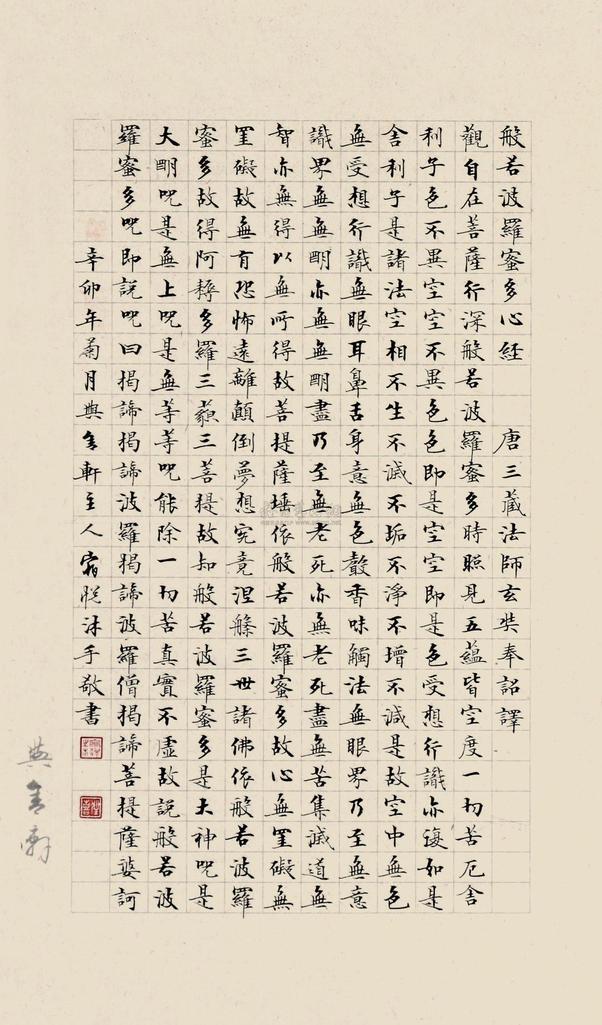 般若波羅蜜多心經 唐三藏法師玄奘奉詔譯
觀自在菩薩行深般若波羅蜜多時照見五蘊皆空度一切苦厄舍
利子色不異空空不異色色即是空空即是色受想行識亦復如是
舍利子是諸法空相不生不滅不垢不淨不增不減是故空中無色
無受想行識無眼耳鼻舌身意無色聲香味觸法無眼界乃至無意
識界無無明亦無無明盡乃至無老死亦無老死盡無苦集滅道無
智亦無得以無所得故菩提薩埵依般若波羅蜜多故心無罣礙無
罣礙故無有恐怖遠離顛倒夢想究竟涅槃三世諸佛依般若波羅
蜜多故得阿耨多羅三藐三菩提故知般若波羅蜜多是大神咒是
大明咒是無上咒是無等等咒能除一切苦真實不虛故說般若波
羅蜜多咒即說咒曰揭諦揭諦波羅揭諦波羅僧揭諦菩提薩婆訶
辛卯年菊月典軒主人悅沐手敬書
典軒